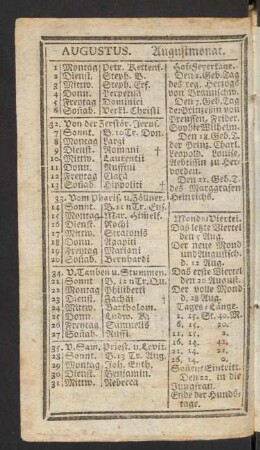 AUGUSTUS. Augustmonat.
1 Montag Petr. Kettenf.
2 Dienst. Steph. B.
3 Mittw. Steph. Erf.
4 Donn.
5 Freytag Dominici
6 Sonab. Verkl. Christi
32. Von der Zerstör. Jerus.
7 Sonnt. B. 10 Tr. Don.
8 Montag
9 Dienst. Romani †
10 Mittw. Laurentii
11 Donn.
12 Freytag Clara
13 Sonab. Hippoliti †
33. Vom Pharis. u. Zöllner.
14 Sonnt.
15 Montag Mar. Himelf.
16 Dienst. Rochi
17 Mittw.
18 Donn. Agapiti
19 Freytag
20 Sonab. Bernhardi
34. V. Tauben u. Stummen.
21 Sonnt.
22 Montag Philiberti
23 Dienst. Zachäi †
24 Mittw. Bartholom.
25 Donn. Ludw.
26 Freytag Samuelis
27 Sonab. Rufi
35. V. Sam. Priest. u. Levit.
28 Sonnt. B. 13 Tr. Aug.
29 Montag Joh. Enth.
30 Dienst. Benjamin.
31 Mittw. Rebecca
Hof-Feyertage.
Den 1. Geb. Tag
des reg. Herzogs
von Braunschw.
Den 7. Geb. Tag
der Prinzeßin von
Preussen, Frider.
Soph. Wilhelm.
Den 18. Geb. T.
der Prinz. Charl.
Leopold. Louise,
Aebtißin zu Her-
vorden.
Den 21. Geb. T.
des Marggrafen
Heinrichs.
Monds-Viertel.
Das letzte Viertel
den 5 Aug.
Der neue Mond
und Augustsch.
d. 12 Aug.
Das erste Viertel
den 20 August.
Der volle Mond
d. 28 Aug.
Tages-Länge.
1. 15. St. 40. M.
6. 15.
21. 14.
26. 14. 0.
Sonnen Eintritt.
Den 22. in die
Jungfrau.
Ende der Hunds-
tage.